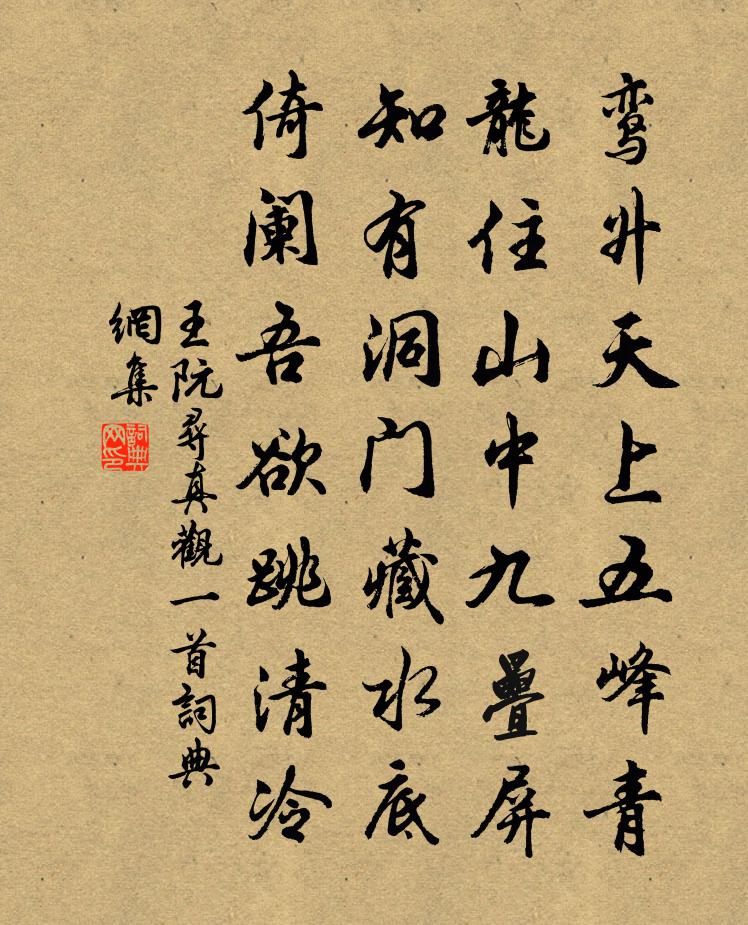 鸾升天上五峰青
龍住山中九疊屏
知有洞门藏水底
倚阑吾欲跳清冷
王阮尋真觀一首詞典
網集
詞典
网印